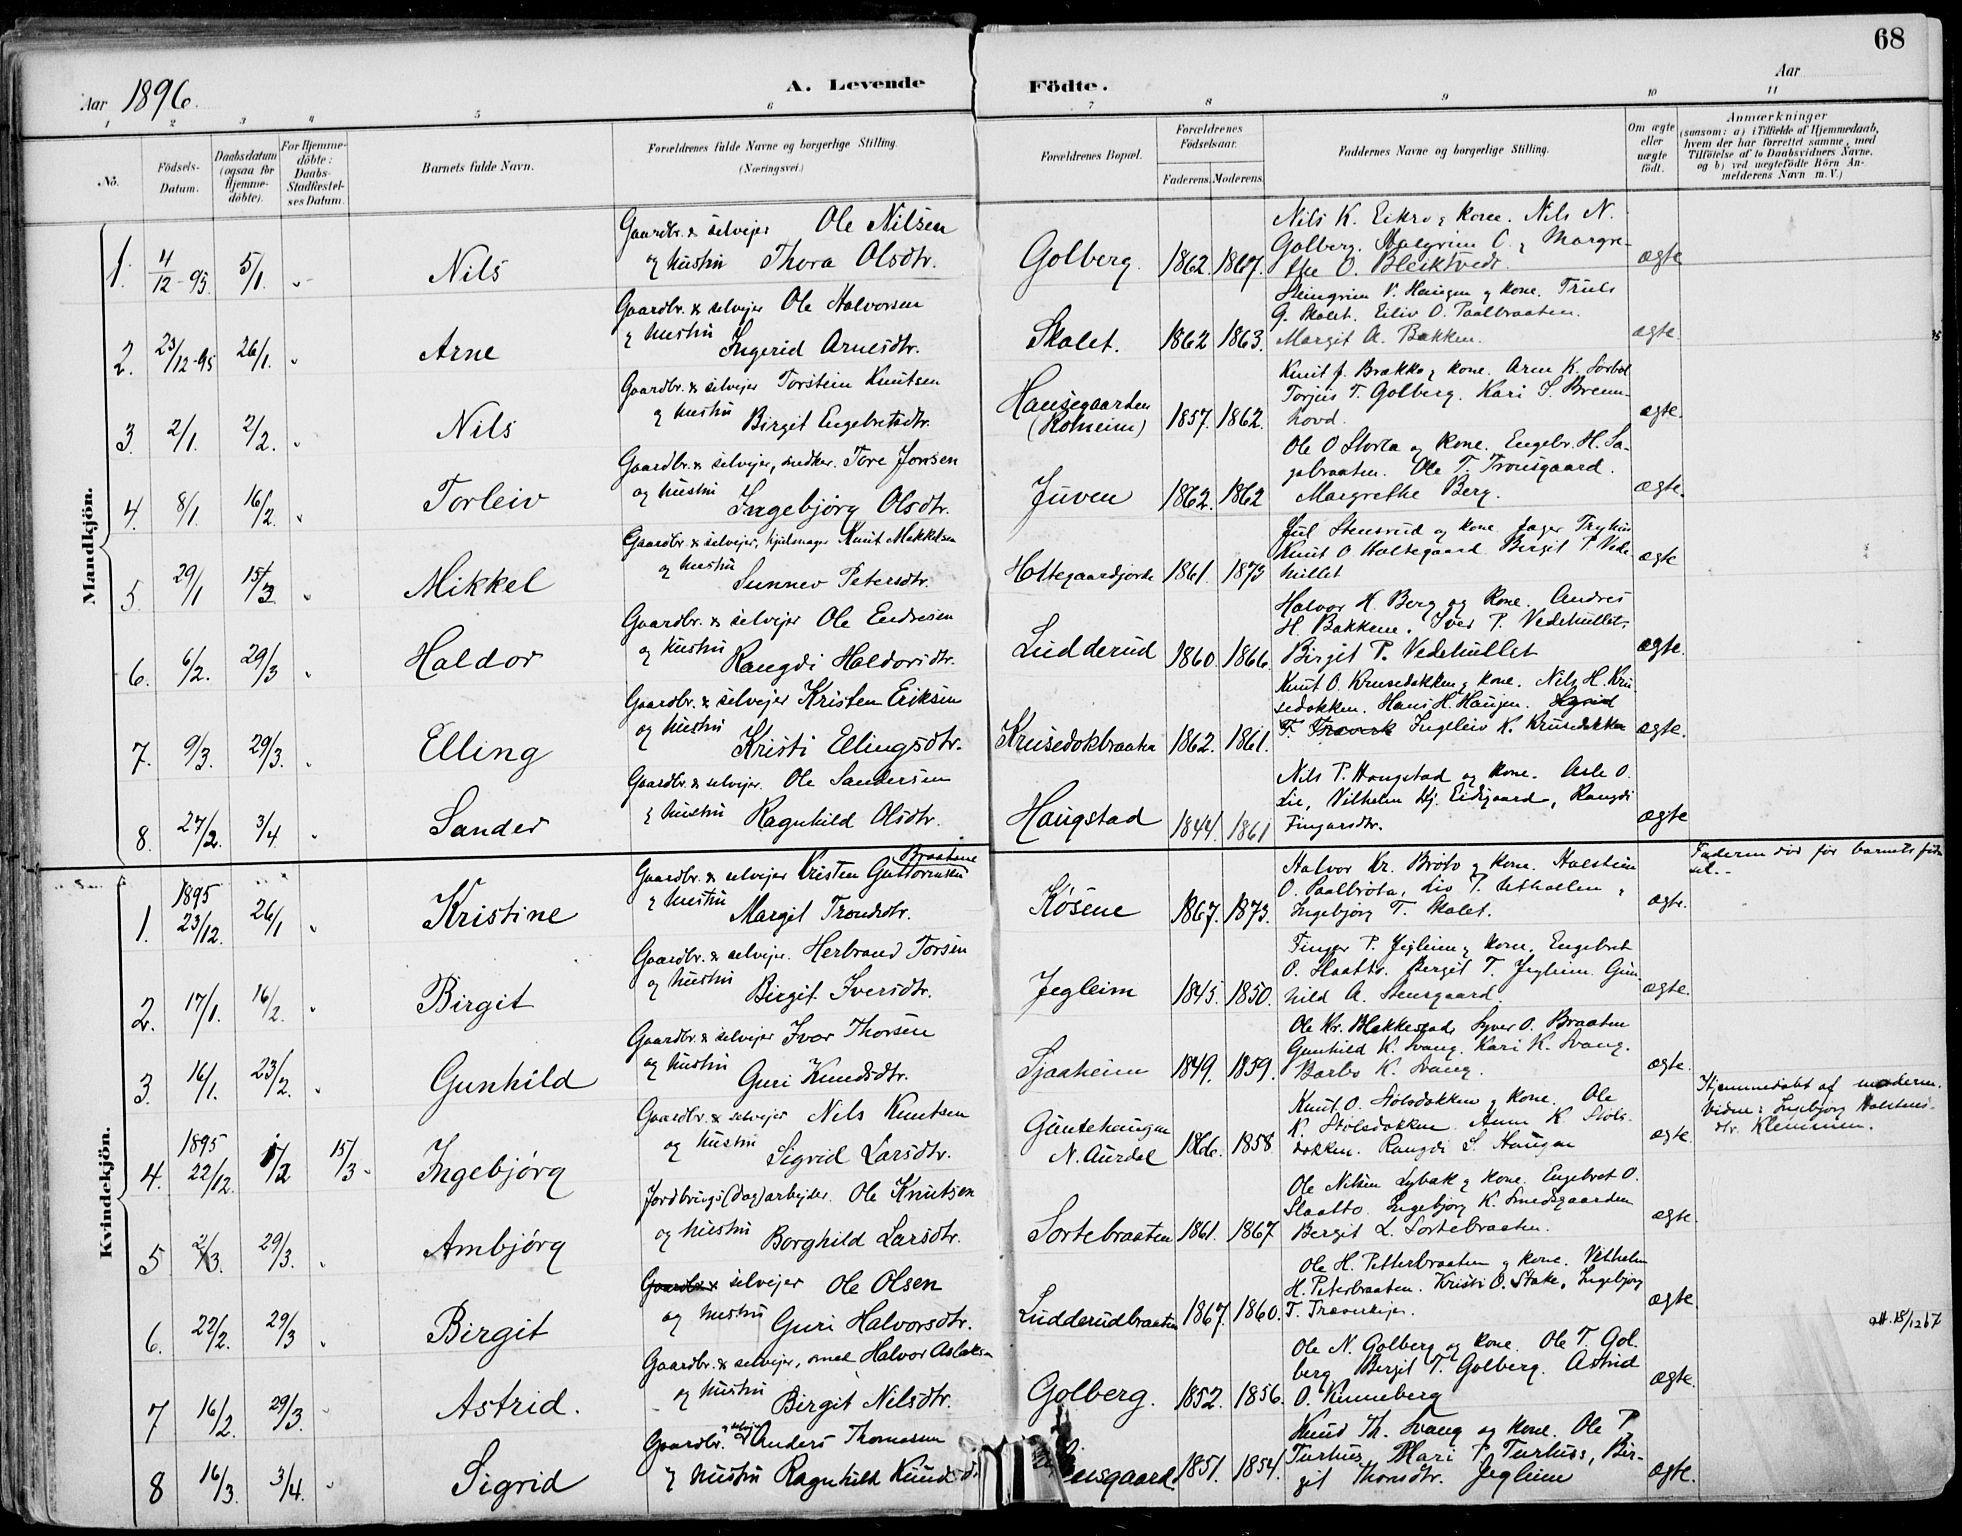 68
Aar 1896. A. Levende Födte. Aar
1 2 3 4 5 6 7 8 9 10 11
No. Födsels-Datum. Daabsdatum (ogsaa för Hjemmedöbte). For Hjemmedöbte: Daabs-Stadfæstelses Datum. Barnets fulde Navn. Forældrenes fulde Navne og borgerlige Stilling. (Næringsvei.) Forældrenes Bopæl. Forældrenes Födselsaar. Faderens. Moderens. Faddernes Navne og borgerlige Stilling. Om ægte eller uægte födt. Anmærkninger (saasom: a) i Tilfælde af Hjemmedaab, hvem der har forrettet samme, med Tilföielse af to Daabsvidners Navne, og b) ved uægtefödte Börn Anmelderens Navn m. V.)
Mandkjön.
Gaardbr. & selvejer Ole Nilsen Nils K. Eikro & kone. Nils N.
1. 4/12-95. 5/1. Nils og hustru Thora Olsdtr. Golberg. 1862. 1867. Golberg. O. & Margrethe O. ægte
Gaardbr. & selvejer Ole Halvorsen Steingrim V. Haugen & kone. Truls
2. 23/12-95 26/1. Arne & hustru Ingerid Arnesdtr. Skolet. 1862 1863. G. Skolet. Eiliv O. Paalbraaten. Margit A. Bakken. ægte.
Gaardbr. & selvejer Torstein Knutsen Knut J. Brække & kone. Arne K. Sorbøl
3. 2/1. 2/2. Nils & hustru Birgit Engebretsdtr. Haugegaarden 1857. 1862. Torjus T. Golberg. Kari S. Brennhovd. ægte.
Gaardbr. & selvejer, snedker. Tore Jonsen Ole O Storla og kone. Engebr. H. Sagabraaten.
4. 8/1. 16/2. Torleiv og hustru Ingebjörg Olsdtr. Juven 1862. 1862 Ole T. Tronsgaard. Margrethe Berg. ægte.
Gaardbr. & selvejer, hjulmager Knut Mikkelsen Stensrud og kone.
5. 29/1 15/3 Mikkel og hustru Sunnev Petersdtr. Holtegaardjorde 1861. 1873 Knut O Holtegaard Birgit P. Vedehullet ægte
Gaardbr. & selvejer Ole Endresen Halvor H. Berg og kone. Andres
6. 6/2. 29/3 Haldor og hustru Rangdi Haldorsdtr. Ludderud 1860. 1866. H. Bakkene. Iver P. Vedehullet. Birgit P. Vedehullet ægte.
Gaardbr. & selvejer Kristen Eriksen Knut O. Krusedokken & kone. Nils H. Krusedokken.
7. 9/3. 29/3. Elling og hustru Kristi Ellingsdtr. Krusedokbraaten 1862. 1861. Hans H. Haugen. Ingeleiv K. Krusedokken ægte.
Gaardbr. & selvejer. Ole Sandersen Nils P. Haugstad og kone. Asle O.
8. 27/2. 3/4. Sander & hustru Ragnhild Olsdtr. Haugstad 1844. 1861 Lie, Vilhelm Hj. Eidsgaard, Rangdi Fingarsdtr. ægte
Kvindekjön.
Gaardbr. & selvejer Kristen Guttormsen Braatene Halvor Kr. Bröto & kone. Holstein Faderen död för barnets födsel.
1. 1895 23/12. 26/1 Kristine & hustru Margit Trondsdtr. Kösene 1867. 1873. O. Paalbröta, Liv T. & Ingebjörg T. Skolet. ægte.
Gaardbr. & selvejer. Herbrand Torsen Finger P. Jegleim & kone. Engebret
2. 17/1. 16/2. Birgit og hustru Birgit Iversdtr. Jegleim 1845. 1850. O. Slaatto. Bergit T. Jegleim. Gunhild A. Stensgaard. ægte.
Gaardbr. & selvejer Ivar Thorsen Ole Kr. Blakkestad. Syver O. Braaten
3. 16/1. 23/2. Gunhild og hustru Guri Knudsdtr. Sjaaheim 1849. 1859. Gunhild K. Svang. Kari K. Svang. Barbo K. Svang. ægte.
Gaardbr. & selvejer Nils Knutsen Knut O. Stölsdokken & kone. Ole Hjemmedöbt af moderen.
4. 1895 22/12. /2 15/3 Ingebjörg og hustru Sigrid Larsdtr. Guntehaugen N. Aurdal 1866. 1858. K. Stölsdokken. Anne K. Stölsdokken. Rangdi S. Haugen ægte. Vidne: Ingebjörg Holsteinsdtr. Klemmen.
Jordbrugs(dag)arbejder. Ole Knutsen Ole Nilsen Lybæk & kone. Engebret O.
5 2/3. 29/3. Ambjörg og hustru Borghild Larsdtr. Sortebraaten 1861. 1867 Slaatto. Ingebjörg K. Smedsgaarden Bergit L. Sortebraaten. ægte.
Gaardbr. & selvejer Ole Olsen Ole H. Petterbraaten & kone. Vilhelm
6. 22/2. 29/3 Birgit og hustru Guri Halvorsdtr. Ludderudbraaten 1867. 1860. H. Peterbraaten. Kristi O. Stake. Ingebjörg T. ægte.
att. 15/12 67
Gaardbr. & selvejer, smed Halvor Aslaksen Ole N. Golberg og kone. Ole T. Golberg
7 16/2. 29/3. Astrid. og hustru Birgit Nilsdtr. Golberg. 1852. 1856. Bergit T. Golberg. Astrid O. Kinneberg ægte.
Gaardbr. & selvejer Anders Thomasen Knud Th. Svang og kone. Ole P.
8 16/3. 3/4. Sigrid & hustru Ragnhild Knudsd ensgaard. 1851. 1854. Turhus, Mari P. Turhuss, Birgit Thorsdtr. Jegleim ægte.